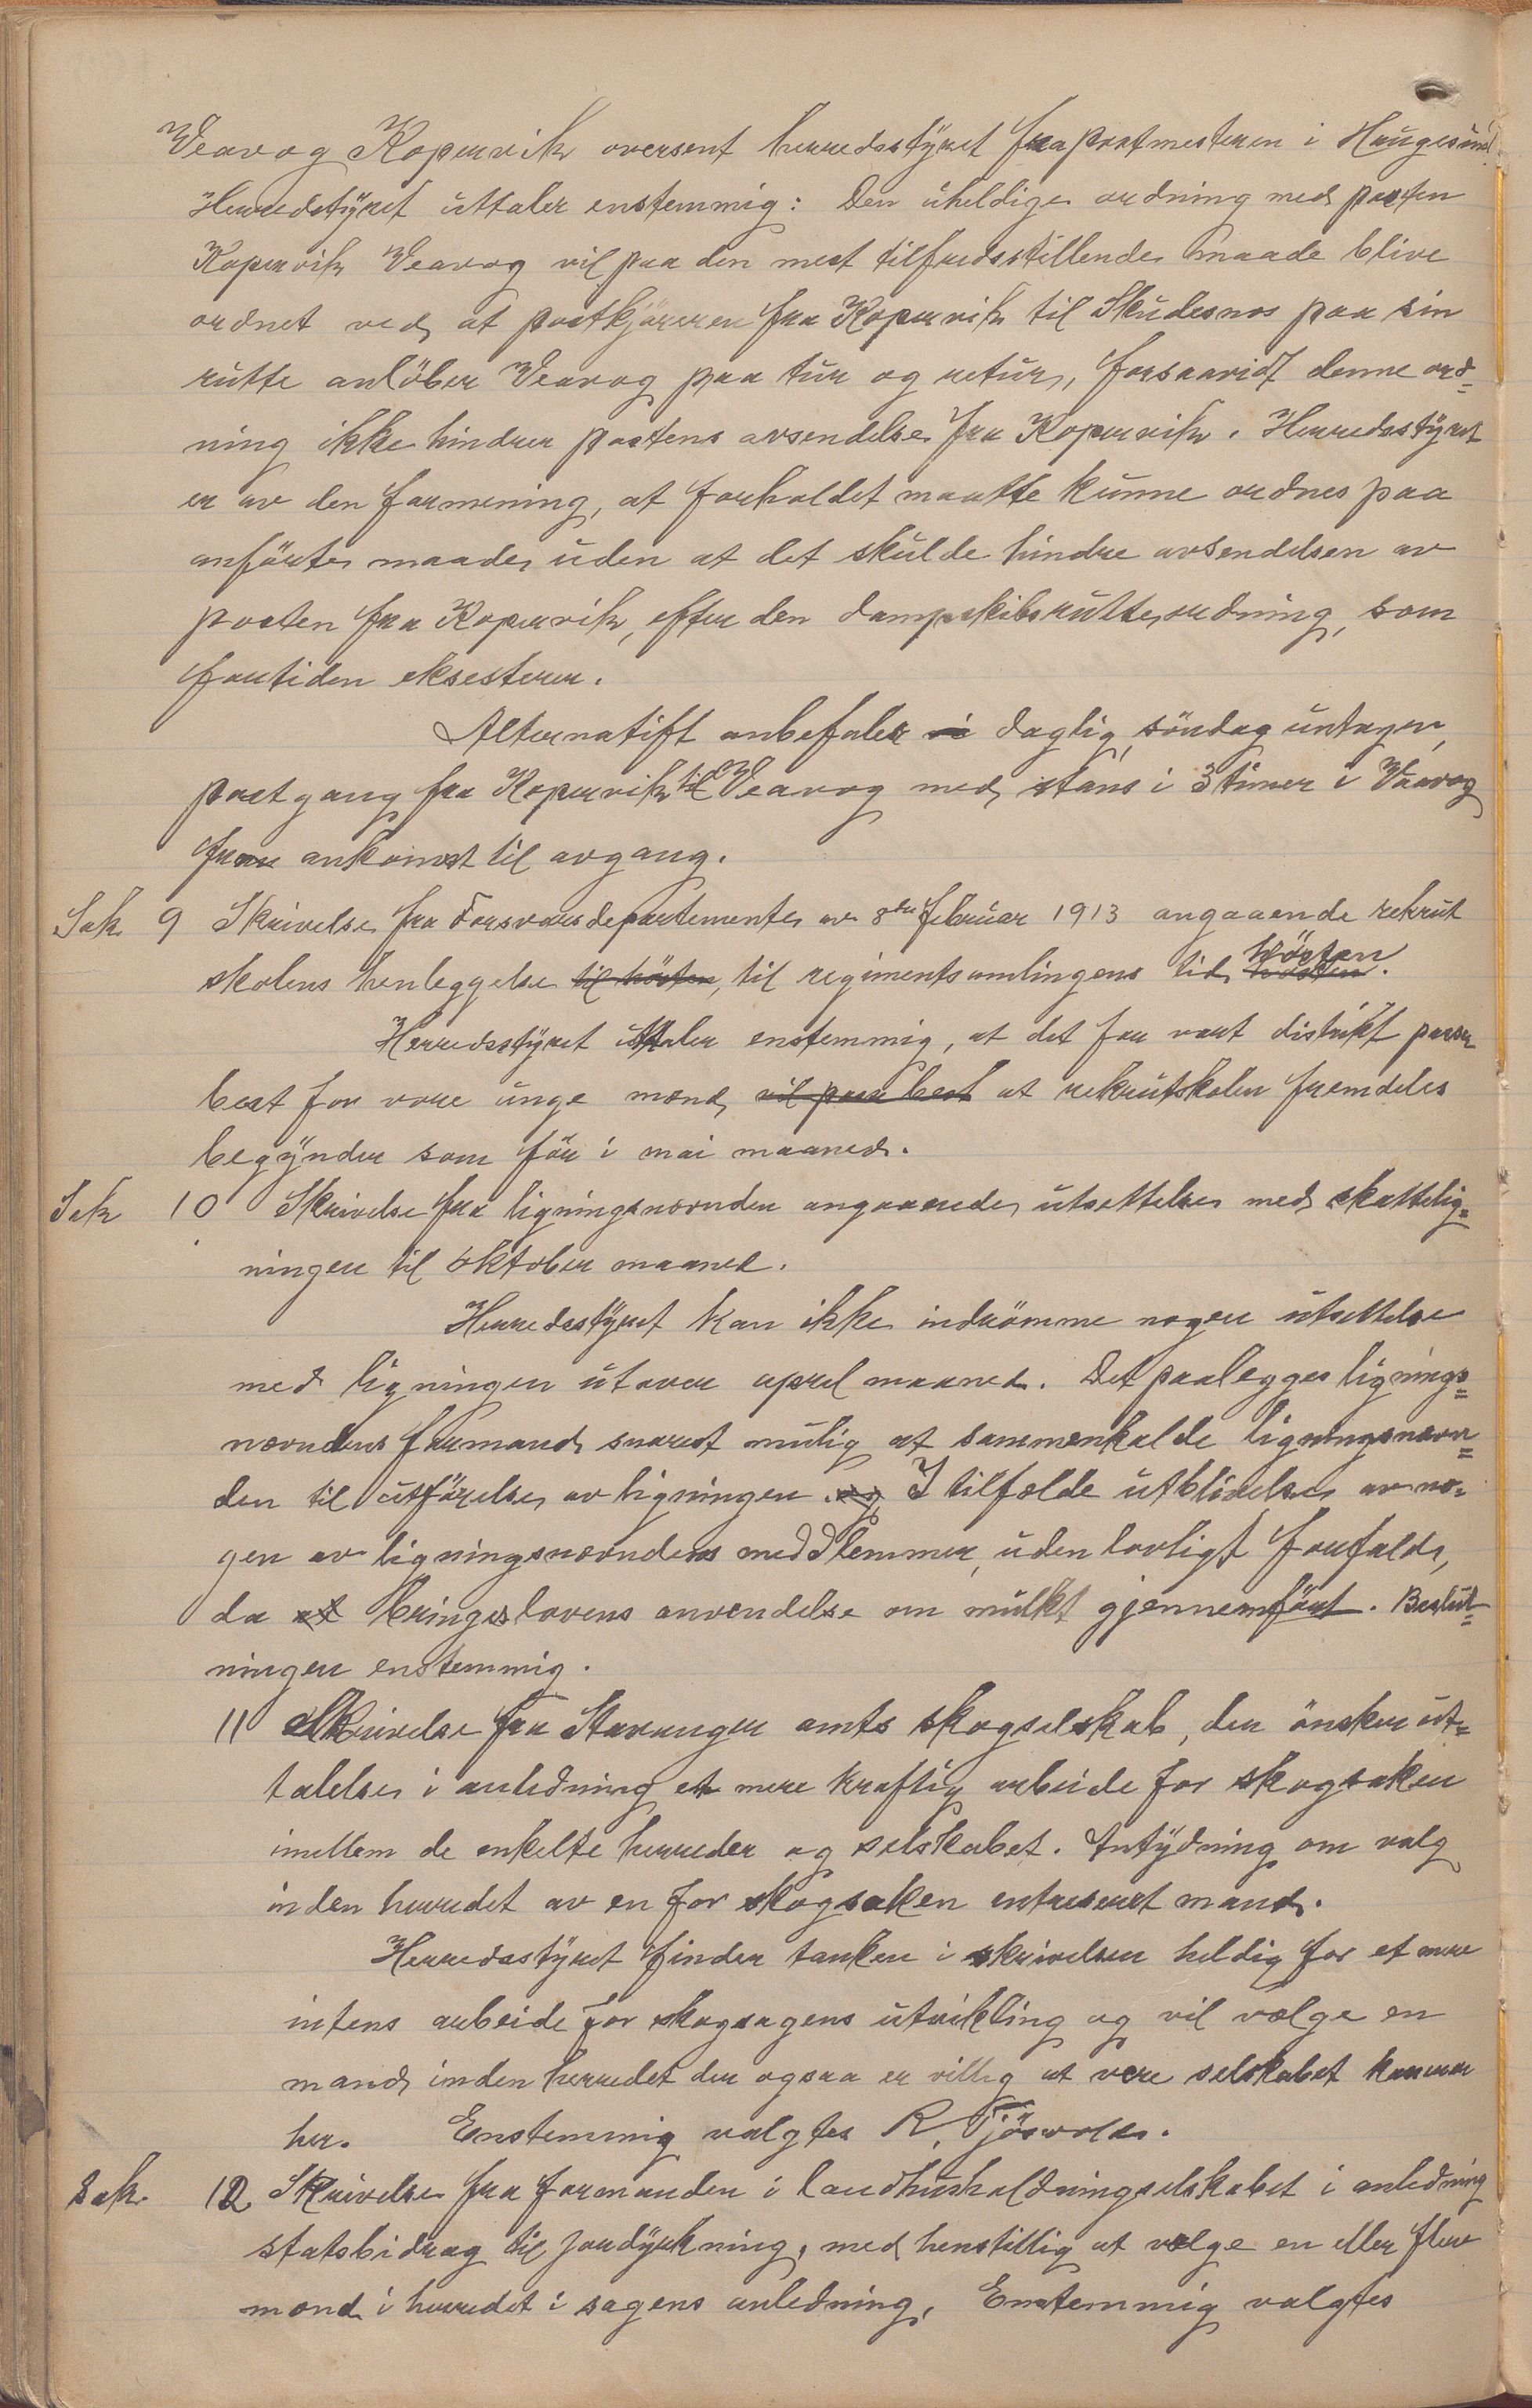 Veavog Kopervik oversent herredsstyret fra postmesteren i Haugesund
Herredstyret uttaler enstemmig: Den uheldige ordning med posten
Kopervik Veavog vil paa den mest tilfredsstillende maade blive
ordnet ved at postkjøreren fra Kopervik til Skudesnes paa sin
rutte anløber Veavog paa tur og retur, forsaavidt denne ord=
ning ikke hindrer postens avsendelse fra Kopervik. Herredsstyret
er av den formening, at forholdet maatte kunne ordnes paa
anførte maade, uden at det skulde hindre avsendelsen av
posten fra Kopervik, efter den dampskibsrutteordning, som
fortiden eksesterer.
Alternatift anbefales daglig, søndag undtagen,
postgang fra Kopervik til Veavog med stans i 3 timer i Veavog
fra ankomst til avgang.
Sak 9 Skrivelse fra Forsvarsdepartemente av 8de februar 1913 angaaende rekrut
skolens henleggelse til høsten, til regimentsamlingens tid høsten høsten.
Herredsstyret uttaler enstemmig, at det for vort distrikt passer
best for vore unge mænd vil passe best at rekrutskolen fremdeles
begynder som før i mai maaned.
Sak 10 Skrivelse fra ligningsnævnden angaaende utsettelse med skattelig=
ningen til oktober maaned.
Herredsstyret kan ikke indrømme nogen utsettelse
med ligningen utover april maaned. Det paalegges lignings=
nævndens formand snarest mulig at sammenkalde ligningsnævn=
den til utførelse av ligningen. og I tilfælde utblivelse av no=
gen av ligningsnævndens meddlemmer, uden lovligt forfald,
da at bringes lovens anvendelse om mulkt gjennemført. Beslut=
ningen enstemmig.
11 Skrivelse fra Stavanger amts skogselskab, der ønsker ut=
talelse i anledning et mere kraftig arbeide for skogsaken
imellem de enkelte herreder og selskabet. Antydning om valg
inden herredet av en for skogsaken entresert mand.
Herredsstyret finder tanken i skrivelsen heldig for et mere
intens arbeide for skogsagens utvikling og vil vælge en
mand inden herredet der ogsaa er villig at være selskabet
her. Enstemmig valgtes R. Tjøsvold.
Sak 12 Skrivelse fra formanden i landhusholdningselskabet i anledning
statsbidrag til jordyrkning, med henstillig at vælge en eller flere
mænd i herredet i sagens anledning. Enstemmig valgtes